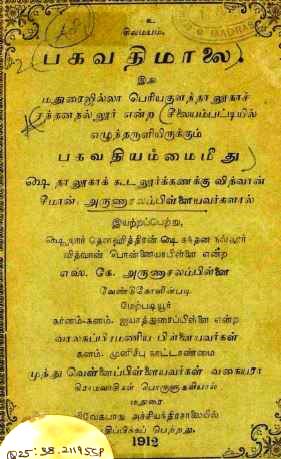 உ
சிவமயம்.
பகவதிமாலை.
இது
மதுரைஜில்லா பெரியகுளத்தாலூகாச்
சந்தனநல்லூர் என்ற சீலையம்பட்டியில்
எழுந்தருளியிருக்கும்
பகவதியம்மைமீது
ஷெ தாலூகாக் கூடலூர்க்கணக்கு வித்வான்
ஸ்ரீமான் அருணாசலம்பிள்ளையவர்களால்
இயற்றப்பெற்று,
ஷெயூரார் தௌஹித்திரன் ஷெ சந்தன நல்லூர்
வித்வான் பொன்னையாபிள்ளை என்ற
எஸ். கே. அருணாசலம்பிள்ளை
வேண்டுகோளின்படி
மேற்படியூர்
கர்ணம்-கனம். ஐயாத்துரைப்பிள்ளை என்ற
பாலசுப்பிரமணிய பிள்ளையவர்கள்
கனம்- முனிசீப் நாட்டாண்மை
முத்து வெள்ளைப்பிள்ளையவர்கள் வகையரா
பொருளுதவியால்
மதுரை
விவேகபாநு அச்சியந்திரசாலையில்
பதிப்பிக்கப் பெற்றது.
1912
MADRAS
25:38.2119558